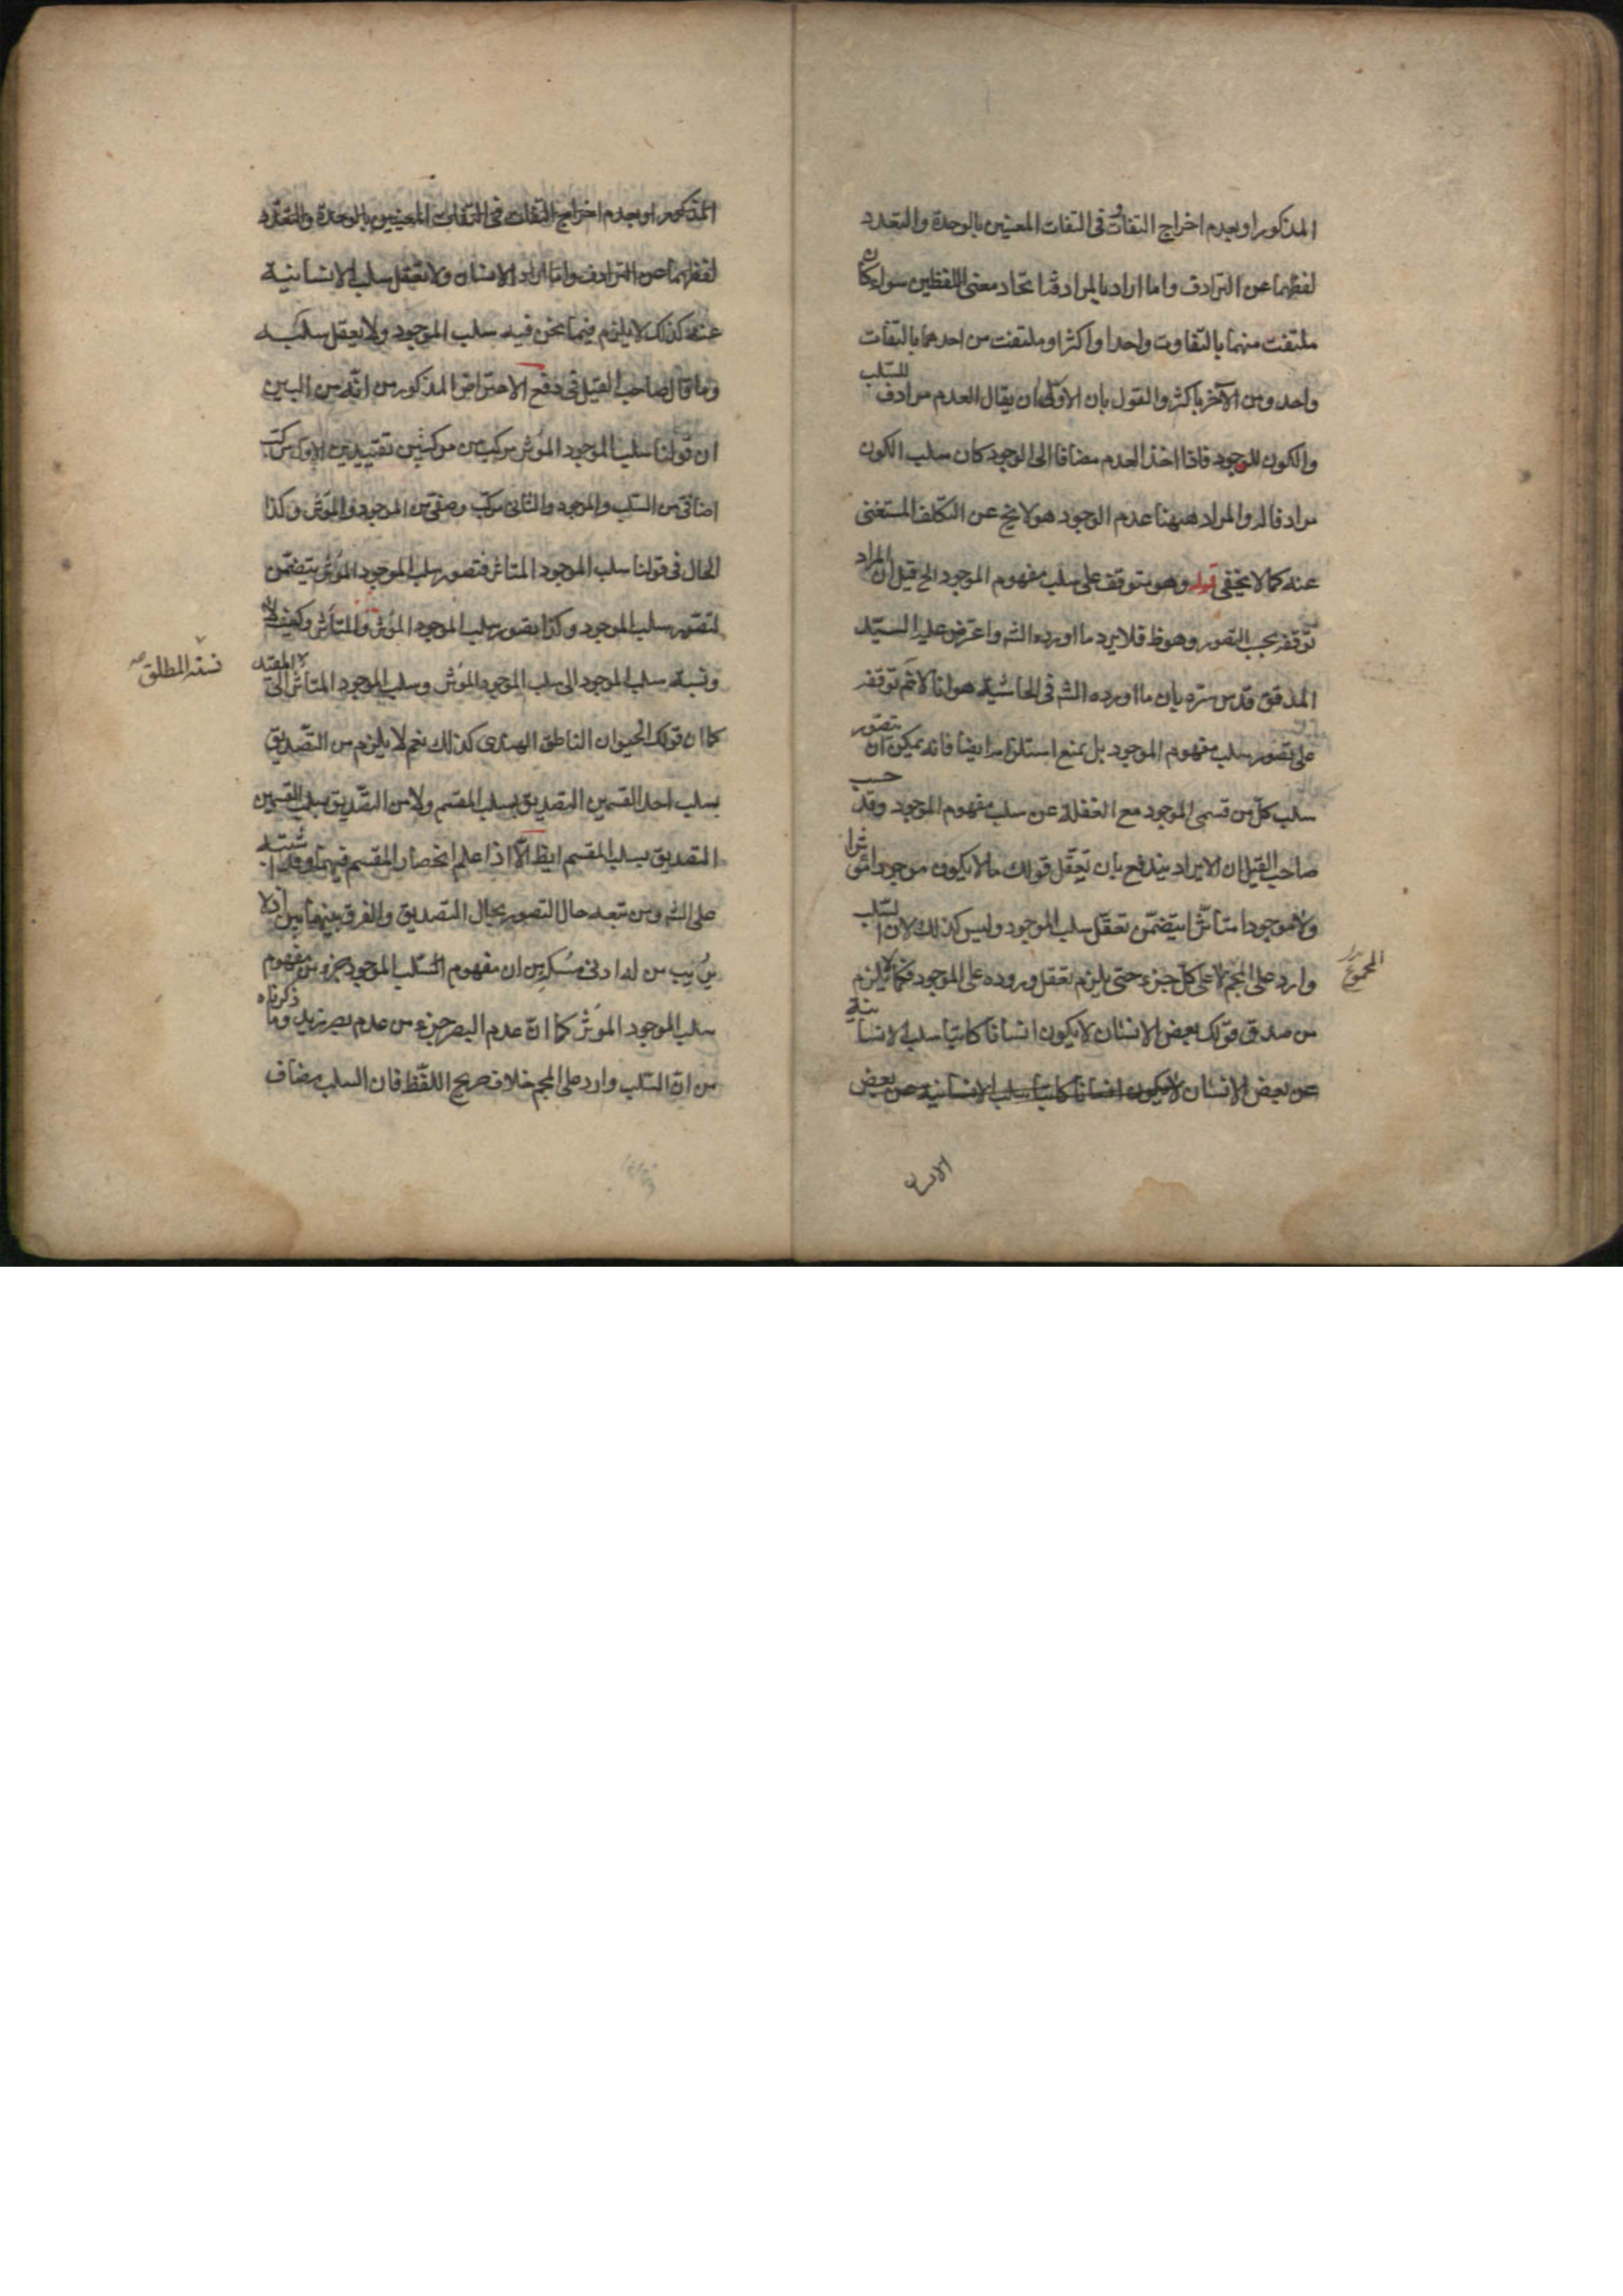 المذكور او بعدم اخراج التفات فى التفات المعنيين بالوحدة والتعدد
لفظهما عن الترادف واما اراد بالمرادفة اتحاد معنى اللفظين سواء كان
ملتفت منهما بالتفاوت واحدا واكثر او ملتفت من احدهما بالتفات
واحد ومن الآخر باكثر والقول بان الاولى ان يقال العدم مرادف للسلب
والكون للوجود فاذا اخذ العدم مضافا الى الوجود كان سلب الكون
مرادفا له والمراد ههنا عدم الوجود هو لا يخ عن التكلف المستغنى
عنه كما لا يخفى قوله وهو يتوقف على سلب مفهوم الموجود الخ قيل ان المراد
توقفه بحسب التصور وهو ظ فلا يرد ما اورده الشه واعترض عليه السيد
المدقق قدس سره بان ما اورده الشه فى الحاشية هو انا لا نم توقفه
على تصور سلب مفهوم الموجود بل نمنع استلزامه ايضا فانه يمكن ان يتصور
سلب كل من قسمى الموجود مع الغفلة عن سلب مفهوم الموجود وقد حسب
صاحب القيل ان الايراد يندفع بان تعقل قولك ما لا يكون موجودا مؤثرا
ولا موجودا متأثرا يتضمن تعقل سلب الموجود وليس كذلك لان السلب
وارد على المجم لا على كل جزء حتى يلزم تعقل وروده على الموجود فكما لا يلزم
المجموع
من صدق قولك بعض الانسان لا يكون انسانا كاتبا سلب الانسانية
عن بعض الانسان لا يكون انسانا كاتبا سلب الانسانية عن بعض
المذكور او بعدم اخراج التفات فى التفات المعنيين بالوحدة والتعدد
لفظهما عن الترادف واما اراد الانسان ولا تعقل سلب الانسانية
عنه كذلك لا يلزم فيما نحن فيه سلب الموجود ولا يعقل سلبه
وما قال صاحب القيل فى دفع الاعتراض المذكور من انه من البين
ان قولنا سلب الموجود المؤثر مركب من مركبين تقييديين الاول مركب
اضافى من السلب والموجود والثانى مركب وصفى من الموجود والمؤثر وكذا
الحال فى قولنا سلب الموجود المتأثر فتصور سلب الموجود المؤثر يتضمن
لتصور سلب الموجود وكذا تصور سلب الموجود المؤثر والمتأثر وكيف لا
ونسبة سلب الموجود الى سلب الموجود المؤثر وسلب الموجود المتأثر الى المقيد
نسبة المطلق
كما ان قولك الحيوان الناطق الهندى كذلك نعم لا يلزم من التصديق
بسلب احد القسمين التصديق بسلب المقسم ولا من التصديق بسلب القسمين
التصديق بسلب المقسم ايظ الا اذا علم انحصار المقسم فيهما وقد اشتبه
على الشه ومن تبعه حال التصور بحال التصديق والفرق بينهما بين اذ لا
يريب من له ادنى مسكة من ان مفهوم السلب الموجود جزء من مفهوم
سلب الموجود المؤثر كما ان عدم البصر جزء من عدم بصر زيد وما ذكرناه
من ان السلب وارد على المجم خلاف صريح اللفظ فان السلب مضاف